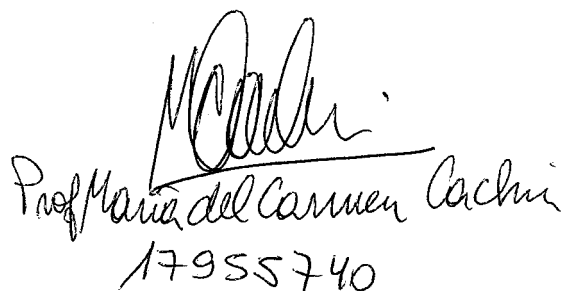 MCachin
Prof María del Carmen Cachin
17955740